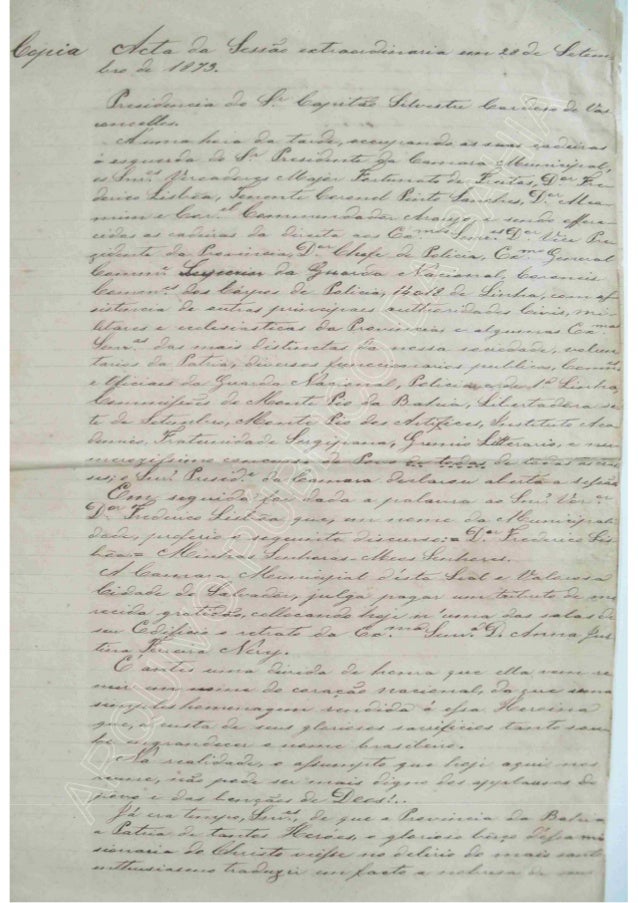 Cópia Acta da Sessão extraordinaria em 28 de Setem-
bro de 1873.
Presidencia do Sr. Capitão Silvestre Cardoso de Vas
concellos.
A uma hora da tarde, occupando as suas cadeiras
á esquerda do Sr. Presidente da Camara Municipal,
os Snres. Vereadores Major Fortunato de Freitas, Dor. Fre
derico Lisbôa, Tenente Coronel Pinto Sanches, Dor.
e Cor.el Commendador Araujo, e sendo offere
cidas as cadeiras da direita aos Snres. Dor. Vice Pre
zidente da Provincia, Dor. Chefe de Policia, General
Comme. Superior da Guarda Nacional, Coroneis
Comm.es dos Córpos de Policia, 14 e 18 de Linha, com as
sistencia de outras principaes authoridades Civis, mi
litares e ecclesiasticas da Provincia e algumas
Snras. das mais distinctas da nossa sociedade, volun
tarios da Patria, diversos funccionarios publicos,
e Officiaes da Guarda Nacional, Policia e de 1ª Linha,
Commissões do Monte Pio da Bahia, Libertadora se
te de Setembro, Monte Pio dos Artifices, Instituto Aca
demico, Fraternidade Sergipana, Gremio Litterario, e nu
merozissimo concurso do Povo de todas de todas as clas
ses; o Snr. Presid.e da Camara declarou aberta a sessão
Em seguida foi dada a palavra ao Snr. Ver.or
Dor. Frederico Lisbôa que, em nome da Municipali
dade, proferio o seguinte discurso: = Dor. Frederico Lis
bôa = Minhas Senhoras - Meus Senhores.
A Camara Municipal d'esta Leal e Valorosa
Cidade do Salvador, julga pagar um tributo de me
recida gratidão, collocando hoje n'uma das salas de
seu Edificio o retrato da Exma. Snra. D. Anna Jus
tina Ferreira Nery.
É antes uma divida de honra que ella vem re
mir em nome do coração nacional, do que uma
simples homenagem rendida á essa Heroina
que, á custa de seus gloriosos sacrificios tanto sou
be engrandecer o nome brasileiro.
Na realidade, o assumpto que hoje aqui nos
reune, não pode ser mais digno dos applausos do
povo e das bençãos de Deos!..
Já era tempo, Snres., de que a Provincia da Bahia
a Patria de tantos Heróes, o glorioso berço d'essa mi
sionaria do Christo viesse no delirio do mais santo
enthusiasmo traduzir em facto a nobresa de seus
ARQUIVO PÚBLICO